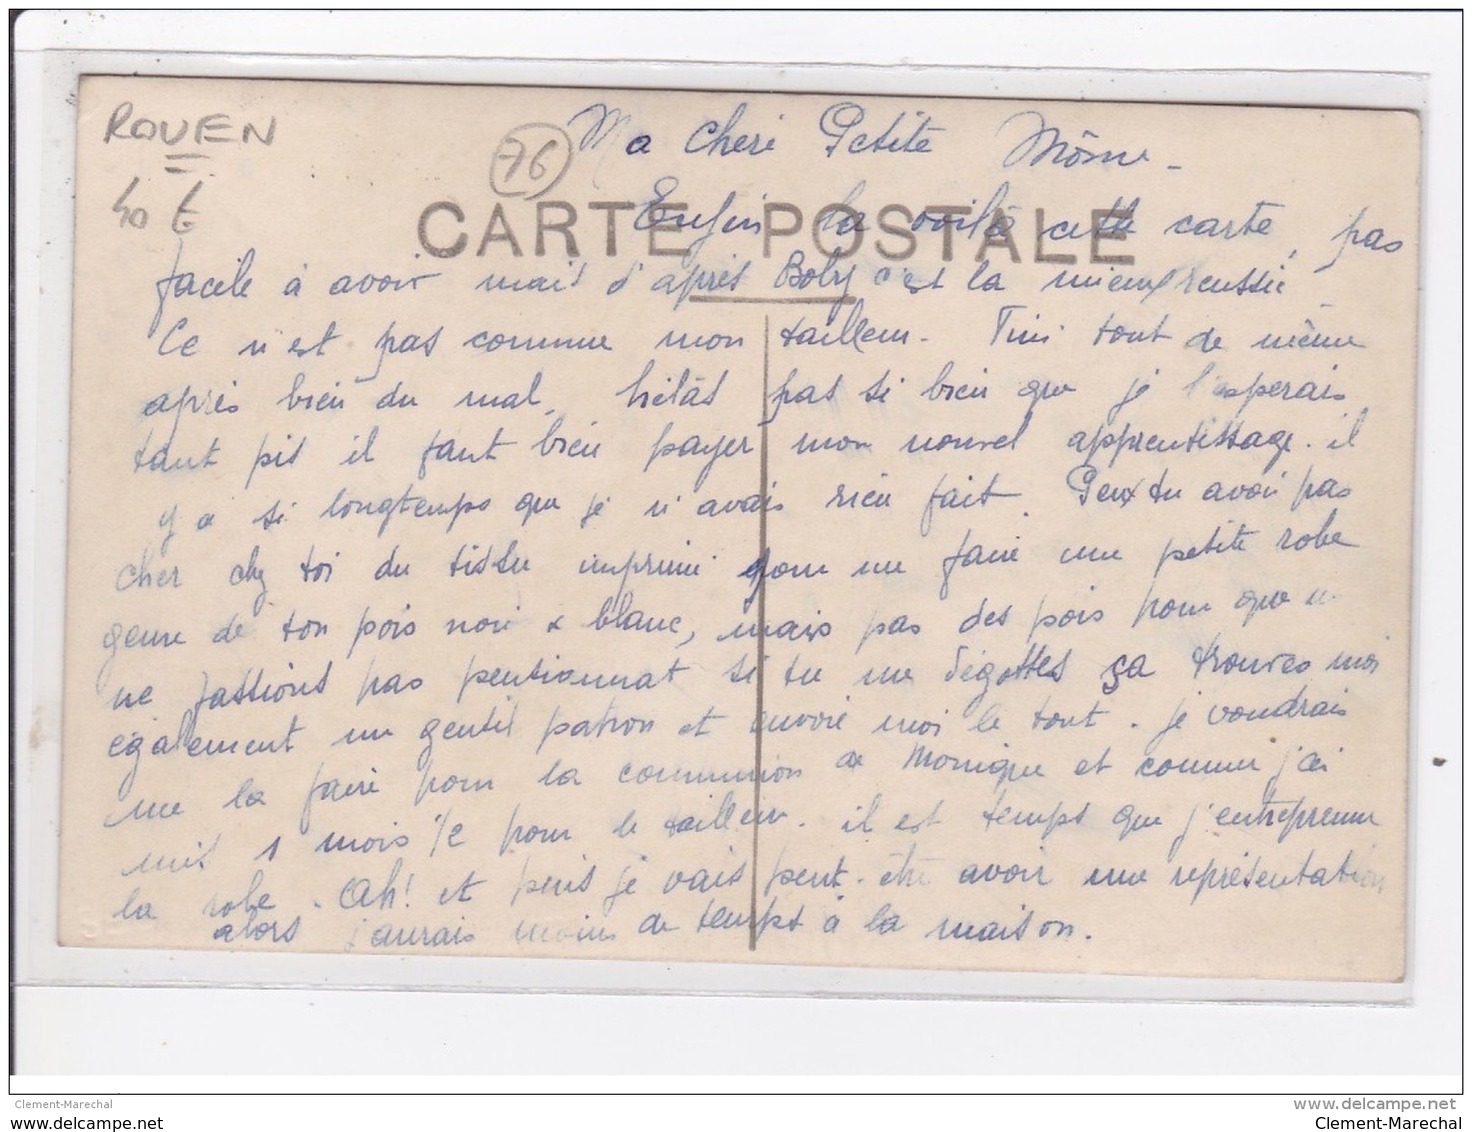 ROUEN
40 €
76
CARTE POSTALE
Ma Cheri Petite Môme -
Enfin la voilà cette carte, pas
facile à avoir mais d'après Boby c'est la mieux reussie
Ce n'est pas comme mon tailleur. Fini tout de même
après bien du mal, hélàs pas si bien que je l'esperais
tant pis il faut bien payer mon nouvel apprentissage. il
y a si longtemps que je n'avais rien fait. Peux tu avoir pas
cher chez toi du tissu imprimé pour me faire une petite robe
genre de ton pois noir & blanc, mais pas des pois pour que n
ne fassions pas pensionnat si tu me dégottes ça trouves moi
également un gentil patron et envoie moi le tout. je voudrais
me la faire pour la communion de Monique et comme j'ai
mis 1 mois 1/2 pour le tailleur. il est temps que j'entreprenne
la robe. Ah! et puis je vais peut-être avoir une représentation
alors j'aurais moins de temps à la maison.
Clement-Marechal
delcampe.net
Clement-Marechal
Clement-Marechal
Clement-Marechal